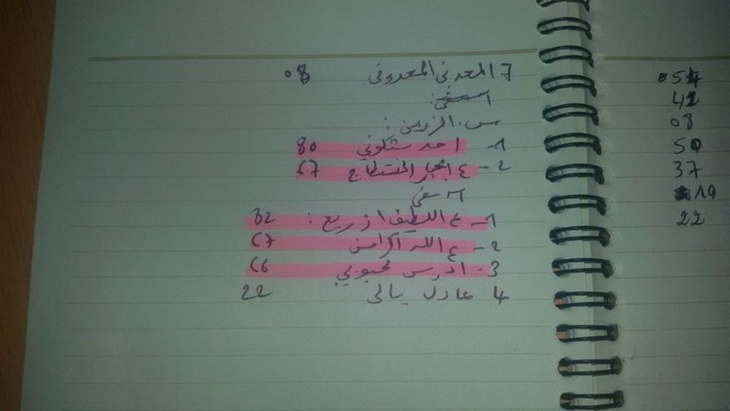 7 المعدني المعدوني 08
اسفي:
س. الزرين:
1- احمد شكوني 80
2- ع الجبار المفسطاح 67
اسفي
1- ع اللطيف ازريع: 32
2- ع الله اكرامن 67
3- ادريس لحبوبي 66
4 عادل يالى 22
054
42
08
50
37
19
22